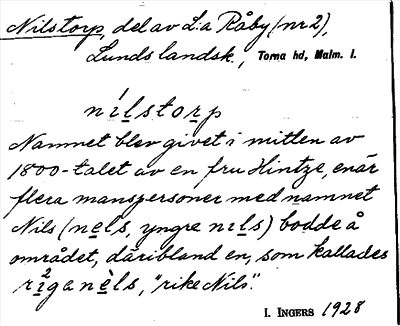 Nilstorp, del av L:a Råby (nr 2),
Lunds landsk., Torna hd, Malm. l.
ní̱lstorp
Namnet blev givet i mitten av
1800-talet av en fru Hintze, enär
flera manspersoner med namnet
Nils (ne̱ls, yngre ni̱ls) bodde å
området, däribland en, som kallades
ri̱²ganèls, "rike Nils".
I. INGERS 1928